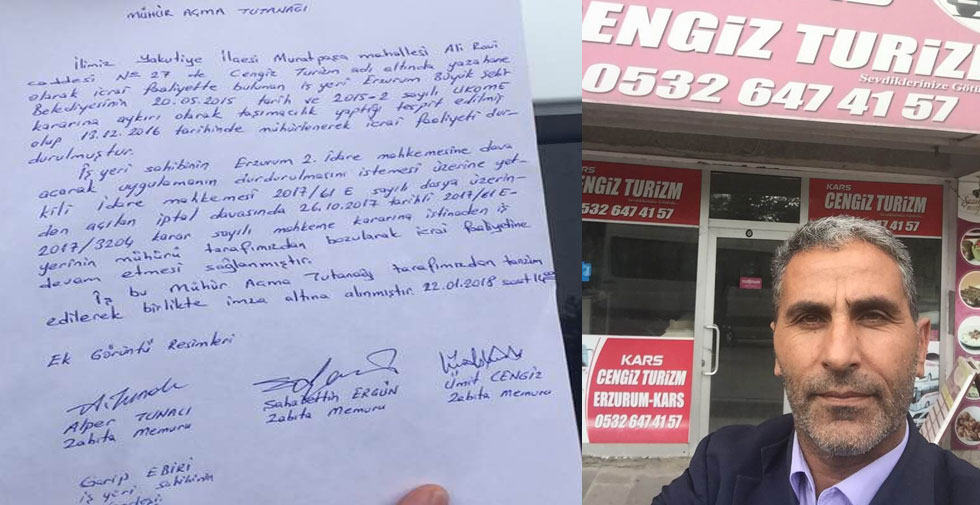 MÜHÜR AÇMA TUTANAĞI
İlimiz Yakutiye İlçesi Muratpaşa mahallesi Ali Ravi
caddesi No 27 de Cengiz Turizm adı altında yazıhane
olarak icrai faaliyette bulunan iş yeri Erzurum Büyük Şehir
Belediyesinin 20.05.2015 tarih ve 2015-2 sayılı UKOME
kararına aykırı olarak taşımacılık yaptığı tespit edilmiş
olup 13.12.2016 tarihinde mühürlenerek icrai faaliyeti dur-
durulmuştur.
İş yeri sahibinin Erzurum 2. İdare mahkemesine dava
açarak uygulamanın durdurulmasını istemesi üzerine yet-
kili İdare mahkemesi 2017/61 E sayılı dosya üzerin-
den açılan iptal davasında 26.10.2017 tarihli 2017/61 E-
2017/3204 karar sayılı mahkeme kararına istinaden iş
yerinin mühürü tarafımızdan bozularak icrai faaliyetine
devam etmesi sağlanmıştır.
İş bu Mühür Açma Tutanağı tarafımızdan tanzim
edilerek birlikte imza altına alınmıştır. 22.01.2018 saat 14
Ek Görüntü Resimleri
Alper TUNACI
Zabıta Memuru
Sahabettin ERGÜN
Zabıta Memuru
Ümit CENGİZ
Zabıta Memuru
Garip EBİRİ
İş yeri sahibinin
CENGİZ TURİZM
Sevdiklerinize Götü
0532 647 41 57
KARS
CENGİZ TURİZM
0532 647 41 57
KARS
CENGİZ TURİZM
0532 647 41 57
KARS
CENGİZ TURİZM
ERZURUM-KARS
0532 647 41 57